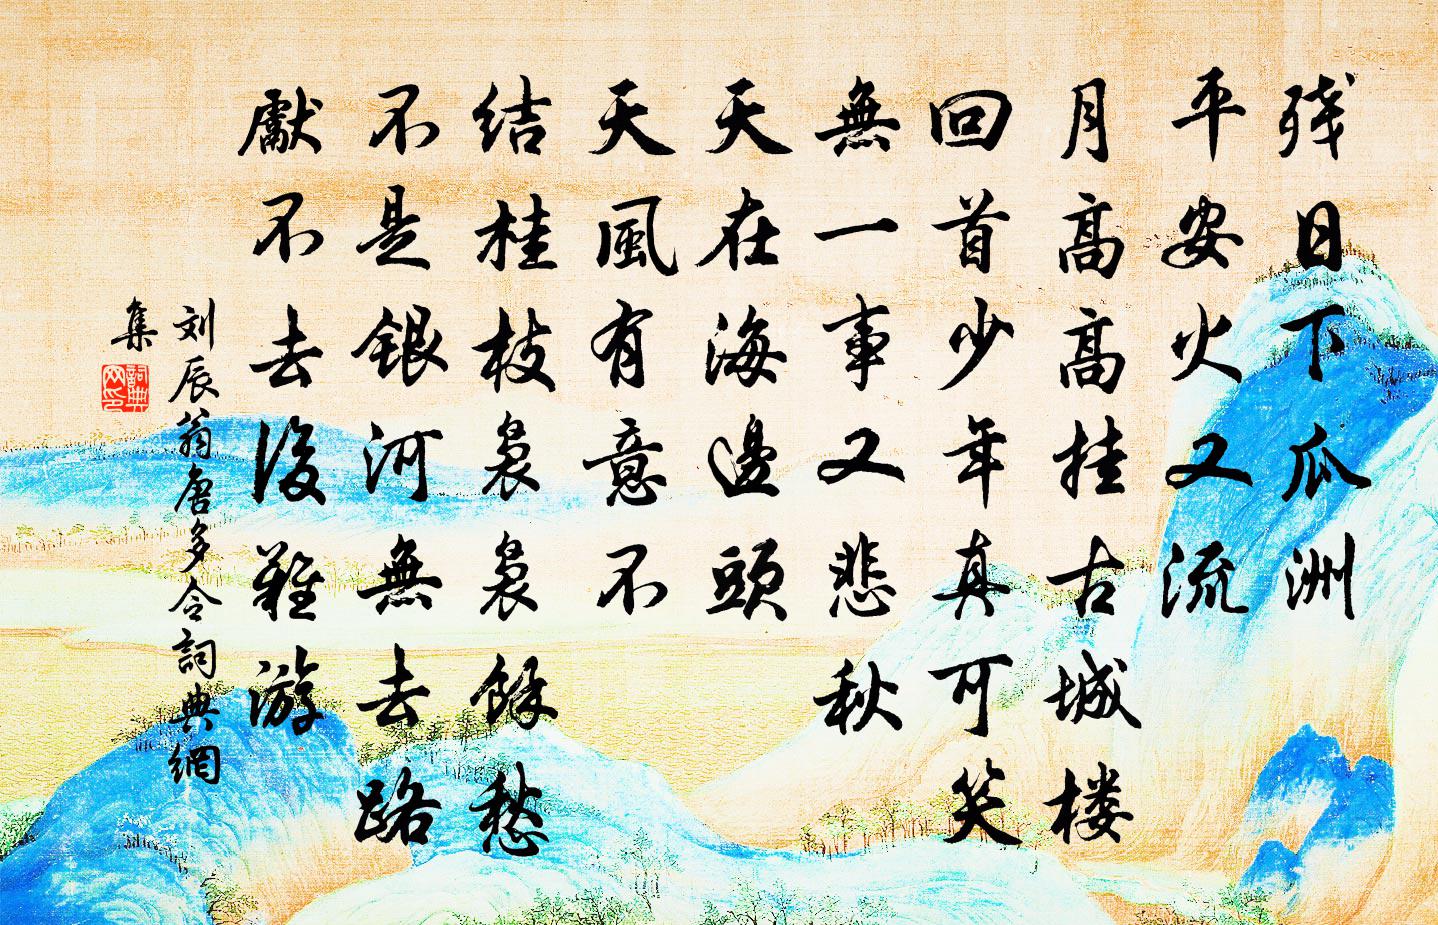 残日下瓜洲
平安火又流
月高高挂古城楼
回首少年真可笑
無一事又悲秋
天在海邊頭
天風有意不
结桂枝袅袅餘愁
不是银河無去路
獻不去後難游
刘辰翁唐多令詞典網
集
詞典网印